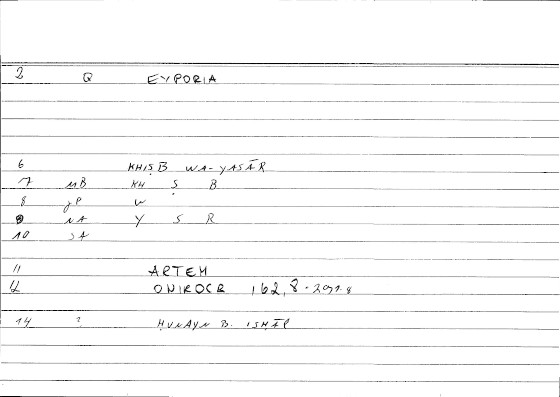 2 Q EYPORIA
6 KHIṢB WA-YASĀR
7 MB KH Ṣ B
8 JP W
9 NA Y S R
10 JA
11 ARTEM
12 ONIROCR 162,8
14 ? ḤUNAYN B. ISḤĀP